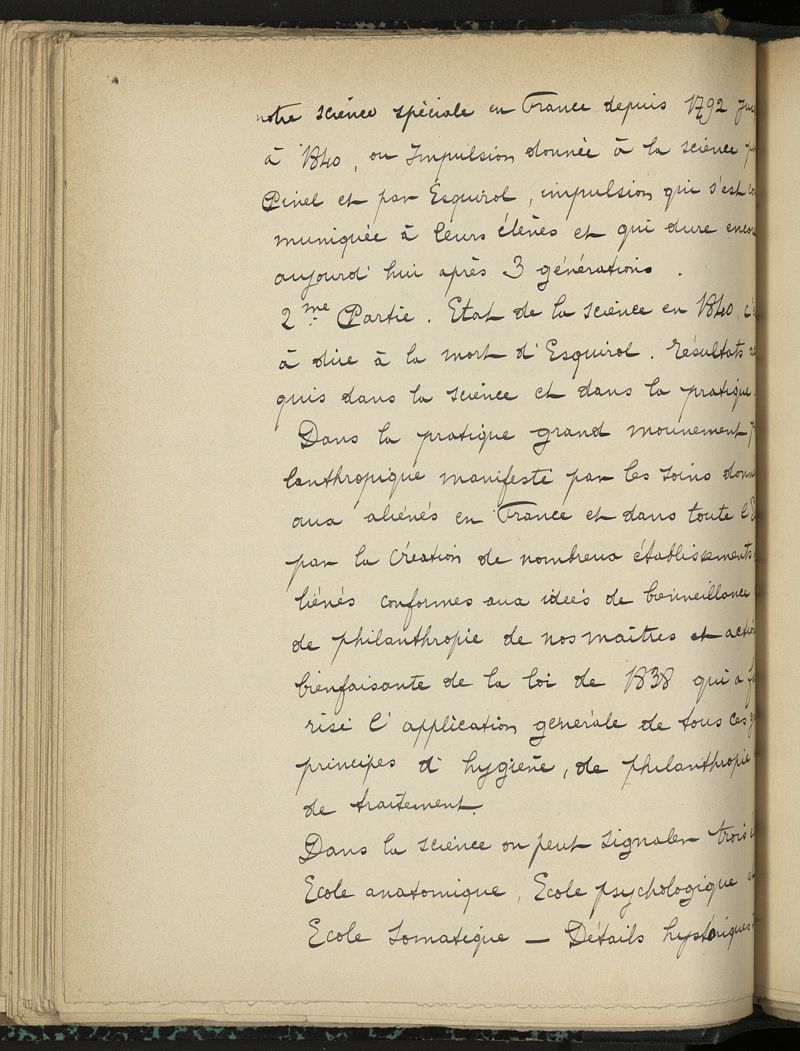 notre science spéciale en France depuis 1792
à 1840, ou Impulsion donnée à la science
Pinel et par Esquirol, impulsion qui s'est
muniquée à leurs élèves et qui dure
aujourd'hui après 3 générations.
2me Partie. Etat de la science en 1840,
à dire à la mort d'Esquirol. Résultats
quis dans la science et dans la pratique.
Dans la pratique grand mouvement
lanthropique manifesté par les soins
aux aliénés en France et dans toute l'
par la création de nombreux établissements
liénés conformes aux idées de bienveillance
de philanthropie de nos maîtres et
bienfaisante de la loi de 1838 qui a
risé l'application générale de tous ces
principes d'hygiène, de philanthropie
de traitement.
Dans la science on peut signaler trois
Ecole anatomique, Ecole psychologique
Ecole Somatique — Détails hystoriques